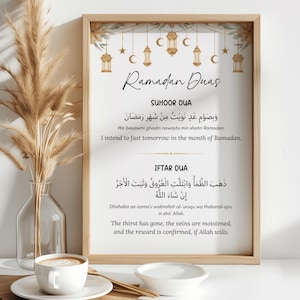 Ramadan Duas
SUHOOR DUA
وَبِصَوْمِ غَدٍ نَوَيْتُ مِنْ شَهْرِ رَمَضَانَ
Wa bisawmi ghadin nawaytu min shahri Ramadan
I intend to fast tomorrow in the month of Ramadan.
IFTAR DUA
ذَهَبَ الظَّمَأُ وَابْتَلَّتِ الْعُرُوْقُ وَثَبَتَ الْأَجْرُ
إِنْ شَاءَ اللَّهُ
Dhahaba az-zama'u wabtallat al-'uruqu wa thabatal-ajru
in sha' Allah.
The thirst has gone, the veins are moistened,
and the reward is confirmed, if Allah wills.